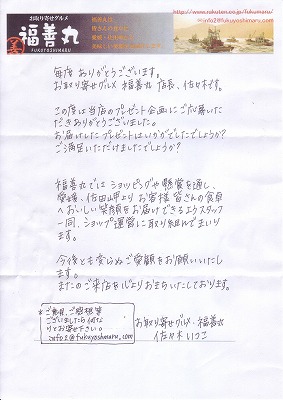 お取り寄せグルメ
福善丸
FUKUYOSHIMARU
http://www.rakuten.co.jp/fukumaru/
info2@fukuyoshimaru.com
毎度 ありがとうございます。
お取り寄せグルメ 福善丸 店長、佐々木です。
この度は当店のプレゼント企画にご応募いた
だきありがとうございました。
お届けしたプレゼントはいかがでしたでしょうか?
ご満足いただけましたでしょうか?
福善丸では ショッピングや懸賞を通し、
愛媛、佐田岬より お客様 皆さんの食卓
へおいしい笑顔をお届けできるようスタッフ
一同、ショップ運営に取り組んでまいり
ます。
今後とも変らぬご愛顧をお願いいたし
ます。
またのご来店を心よりお待ちいたしております。
*ご意見、ご感想等
ございましたら何な
りとお寄せ下さい。
info2@fukuyoshimaru.com
お取り寄せグルメ・福善丸
佐々木いつこ